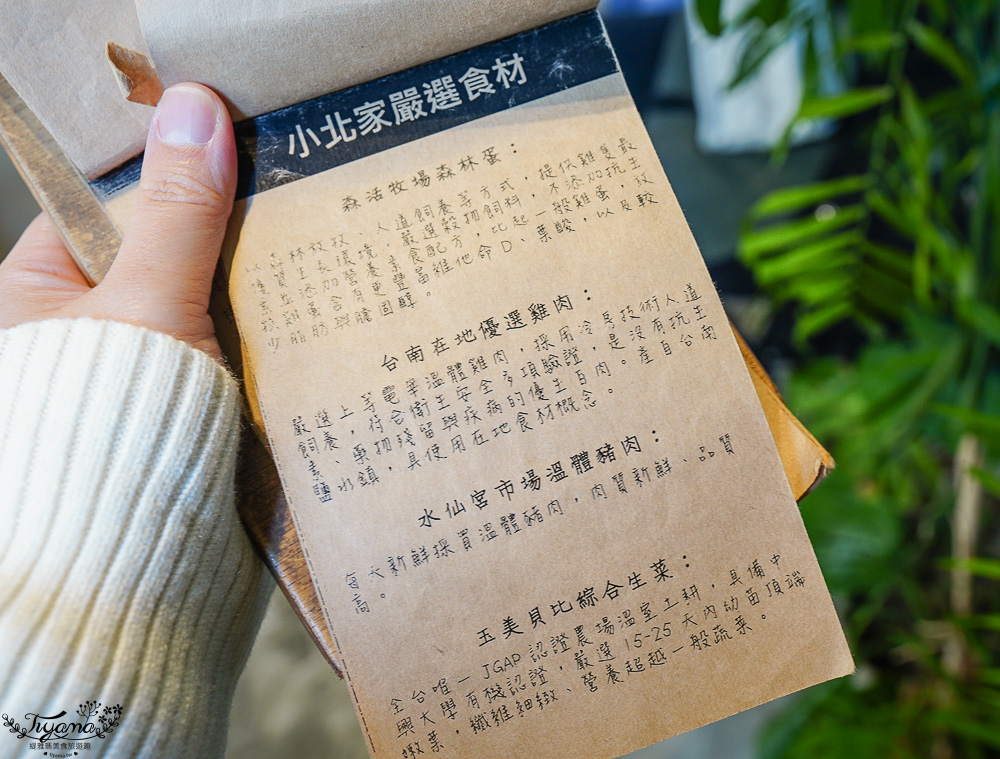 小北家嚴選食材
森活牧場森林蛋：
以森林牧牧、人道飼養等方式，提供雞隻最
優質生長環境，嚴選穀物飼料，不添加抗生
素並添加營養素食配方，比起一般雞蛋，放
牧雞蛋含有更豐富維他命D、葉酸，以及較
少脂肪與膽固醇。
台南在地優選雞肉：
嚴選上等電宰溫體雞肉，採用冷房技術人道
飼養，符合衛生安全多項驗證，是沒有抗生
素、藥物殘留與疾病的優生白肉。產自台南
鹽水鎮，具使用在地食材概念。
水仙宮市場溫體豬肉：
每天新鮮採買溫體豬肉，肉質新鮮、品質
高。
玉美貝比綜合生菜：
全台唯一JGAP認證農場溫室土耕，具備中
興大學有機認證，嚴選15-25天內幼苗頂端
嫩葉，纖維細緻、營養超越一般蔬菜。
Tiyama
緹雅瑪美食旅遊趣